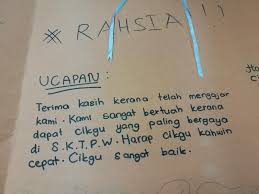 * RAHSIA !!
UCAPAN :
Terima kasih kerana telah mengajar
kami. Kami sangat bertuah kerana
dapat cikgu yang paling bergaya
di S.K.T.P.W. Harap cikgu kahwin
cepat. Cikgu sangat baik.